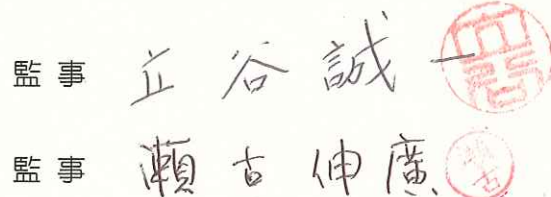 監事 立谷誠一
監事 瀬古伸廣